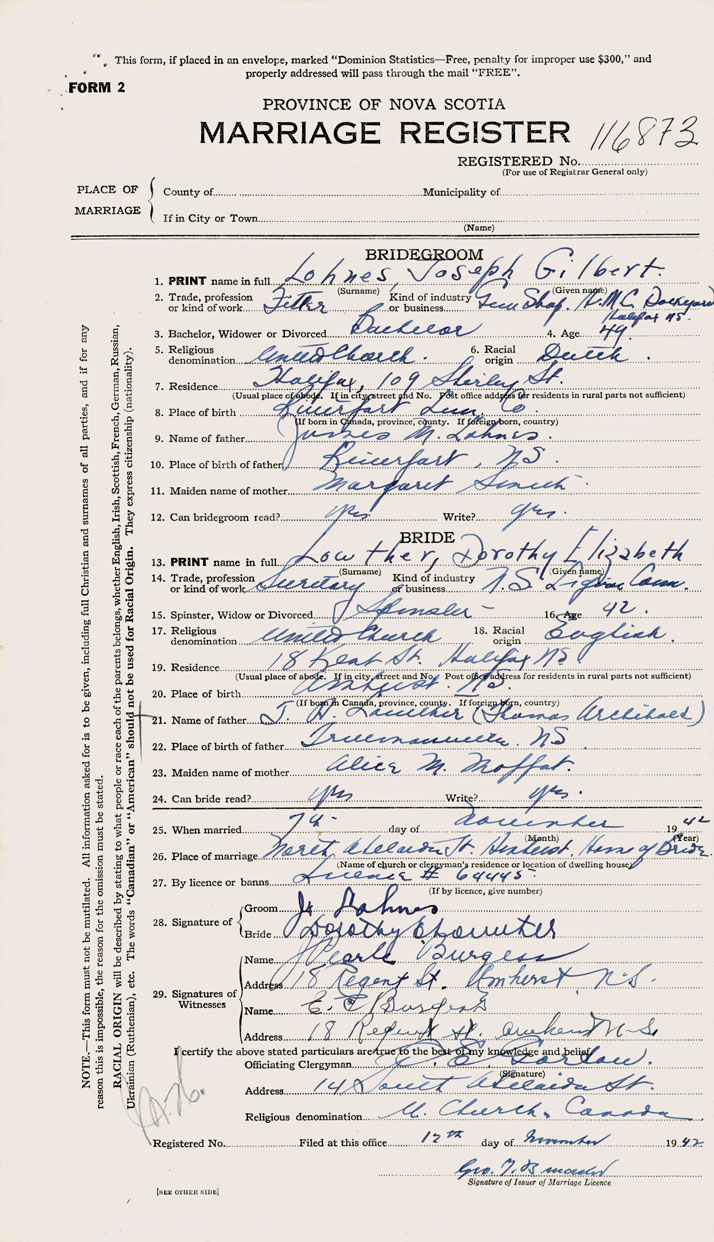 This form, if placed in an envelope, marked "Dominion Statistics—Free, penalty for improper use $300," and
properly addressed will pass through the mail "FREE".
FORM 2
PROVINCE OF NOVA SCOTIA
MARRIAGE REGISTER 116873
REGISTERED No.
(For use of Registrar General only)
PLACE OF MARRIAGE
County of Municipality of
If in City or Town
(Name)
BRIDEGROOM
1. PRINT name in full Lohnes, Joseph Gilbert.
(Surname) (Given name)
2. Trade, profession or kind of work Fitter Kind of industry or business Gun Shop. H.M.C. Dockyard Halifax NS.
3. Bachelor, Widower or Divorced Bachelor 4. Age 49
5. Religious denomination United Church. 6. Racial origin Dutch.
7. Residence Halifax, 109 Shirley St.
(Usual place of abode. If in city, street and No. Post office address for residents in rural parts not sufficient)
8. Place of birth Lun. Co.
(If born in Canada, province, county. If foreign born, country)
9. Name of father James M. Lohnes.
10. Place of birth of father N.S.
11. Maiden name of mother Margaret Smith
12. Can bridegroom read? yes Write? yes.
BRIDE
13. PRINT name in full Lowther, Dorothy Elizabeth
(Surname) (Given name)
14. Trade, profession or kind of work Secretary Kind of industry or business N.S. Liquor Com.
15. Spinster, Widow or Divorced Spinster 16. Age 42.
17. Religious denomination United Church 18. Racial origin English.
19. Residence 18 Kent St. Halifax NS
(Usual place of abode. If in city, street and No. Post office address for residents in rural parts not sufficient)
20. Place of birth Amherst. NS.
(If born in Canada, province, county. If foreign born, country)
21. Name of father T. A. Lowther (Thomas Archibald)
22. Place of birth of father Truemanville. NS
23. Maiden name of mother Alice M. Moffat.
24. Can bride read? yes Write? yes.
25. When married 7th day of November 1942
(Month) (Year)
26. Place of marriage North Adelaide St. Amherst. Home of Bride.
(Name of church or clergyman's residence or location of dwelling house)
27. By licence or banns Licence # 64445
(If by licence, give number)
28. Signature of
Groom Lohnes
Bride Dorothy E Lowther
29. Signatures of Witnesses
Name Pearle Burgess
Address 18 Regent St. Amherst, N.S.
Name E. E. Burgess
Address 18 Regent St. Amherst N.S.
I certify the above stated particulars are true to the best of my knowledge and belief.
Officiating Clergyman
(Signature)
Address 14 South Adelaide St.
Religious denomination U. Church, Canada
Registered No. Filed at this office 12th day of November 1942
Geo. T.
Signature of Issuer of Marriage Licence
[SEE OTHER SIDE]
NOTE.—This form must not be mutilated. All information asked for is to be given, including full Christian and surnames of all parties, and if for any
reason this is impossible, the reason for the omission must be stated.
RACIAL ORIGIN will be described by stating to what people or race each of the parents belongs, whether English, Irish, Scottish, French, German, Russian,
Ukrainian (Ruthenian), etc. The words "Canadian" or "American" should not be used for Racial Origin. They express citizenship (nationality).